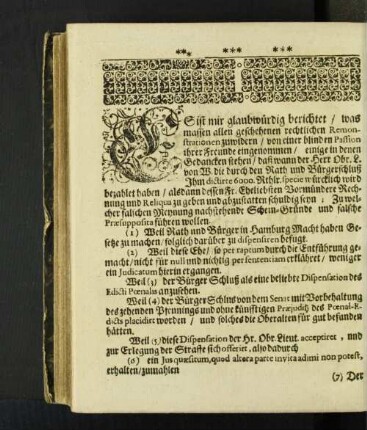 ES ist mir glaubwürdig berichtet / was
massen allen geschehenen rechtlichen Remon-
strationen zuwidern / von einer blinden Passion
ihrer Freunde eingenommen / einige in denen
Gedancken stehen / daß wann der Herr Obr. L.
von W. die durch den Rath und Bürgerschluß
Ihm dictirte 6000. Rthlr. specie würcklich wird
bezahlet haben / alsdann dessen Fr. Eheliebsten Vormündere Rech-
nung und Reliqua zu geben und abzustatten schuldig seyn : Zu wel-
cher falschen Meynung nachstehende Schein-Gründe und falsche
Præsupposita führen wollen
(1) Weil Rath und Bürger in Hamburg Macht haben Ge-
setze zu machen / folglich darüber zu dispensiren befugt.
(2) Weil diese Ehe / so per raptum durch die Entführung ge-
macht / nicht für null und nichtig per sententiam erklähret / weniger
ein Judicatum hierin ergangen.
Weil (3) der Bürger Schluß als eine beliebte Dispensation des
Edicti Pœnalis anzusehen.
Weil (4) der Bürger Schluß von dem Senat mit Vorbehaltung
des zehenden Pfennings und ohne künfftigen Præjuditz des Pœnal-E-
dicts placidiret worden / und solches die Oberalten für gut befunden
hätten.
Weil (5) diese Dispensation der Hr. Obr. Lieut. acceptiret , und
zur Erlegung der Straffe sich offeriret , also dadurch
(6) ein Jus quæsitum, quod altera parte invita adimi non potest,
erhalten / zumahlen
(7) Der